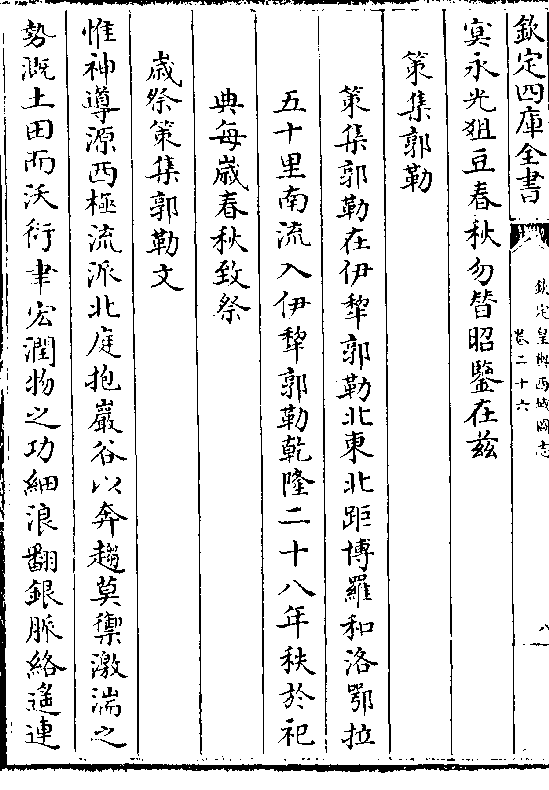 欽定四庫全書
欽定皇輿西域圖志
卷二十六
八
寘永光俎豆春秋勿替昭鑒在兹
策集郭勒
策集郭勒在伊犂郭勒北東北距博羅和洛鄂拉
五十里南流入伊犂郭勒乾隆二十八年秩於祀
典每嵗春秋致祭
嵗祭策集郭勒文
惟神導源西極流派北庭抱巖谷以奔趨莫禦激湍之
勢溉土田而沃衍聿宏潤物之功細浪翻銀脈絡遙連